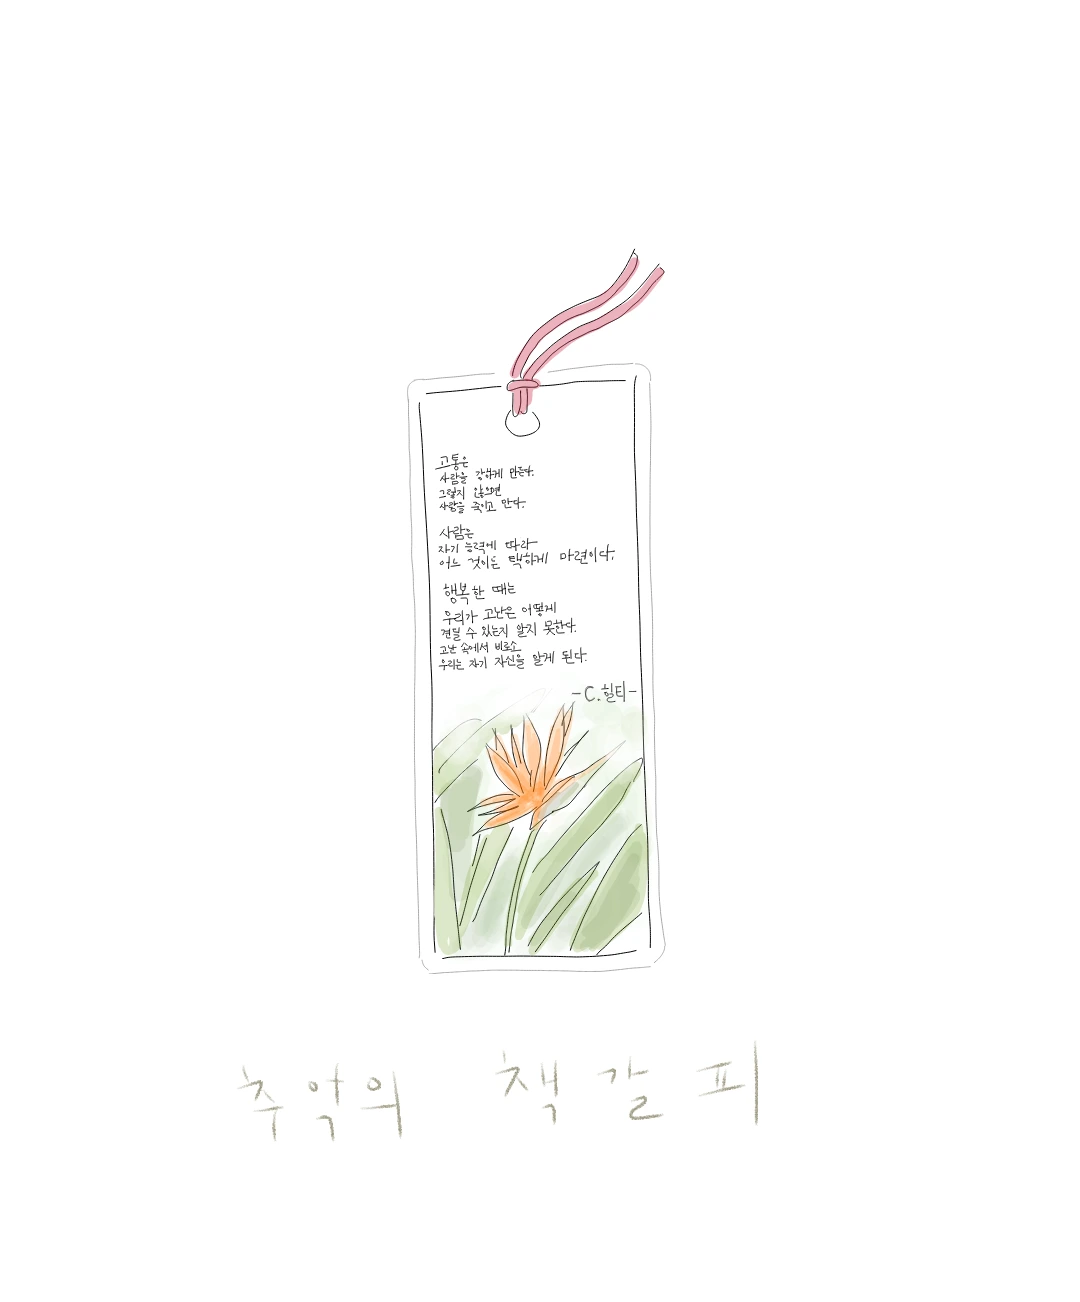 고통은
사람을 강하게 만든다.
그렇지 않으면
사람을 죽이고 만다.
사람은
자기 능력에 따라
어느 것이든 택하게 마련이다.
행복한 때는
우리가 고난은 어떻게
견딜 수 있는지 알지 못한다.
고난 속에서 비로소
우리는 자기 자신을 알게 된다.
-C.힐티-
추억의 책갈피